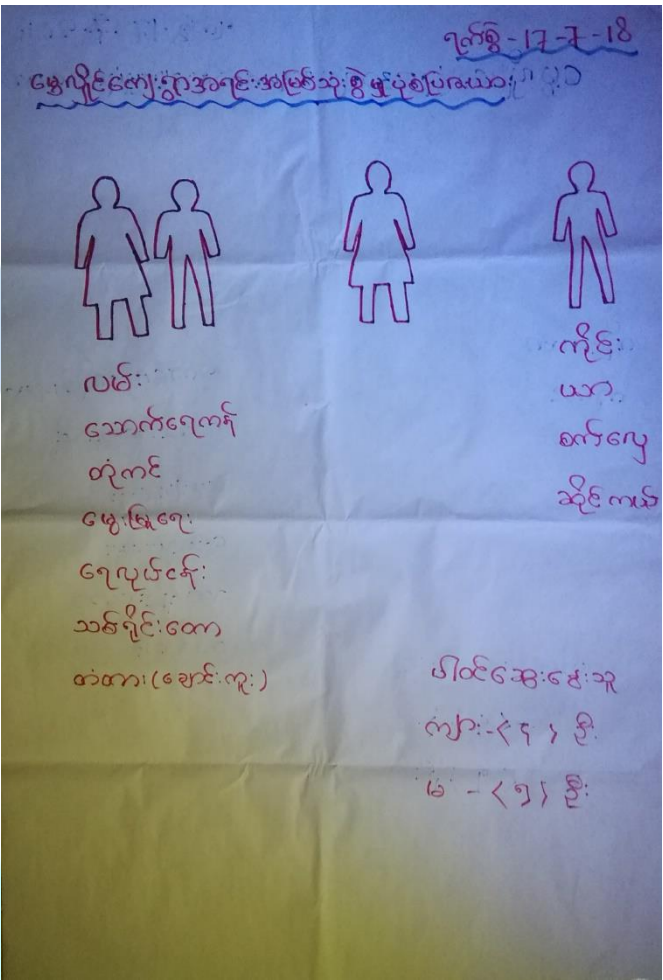 ရက်စွဲ - 17-7-18
မွေလှိုင်ကျေးရွာအရင်းအမြစ်သုံးစွဲမှုပုံစံပြဇယား
လမ်း
သောက်ရေကန်
တုံကင်
မွေးမြူရေး
ရေလုပ်ငန်း
သစ်ရိုင်းတော
တံတား (ချောင်းကူး)
ကိုင်း
ယာ
စက်လှေ
ပါဝင်ဆွေးနွေးသူ
ကျား - < ၄ > ဦး
မ - < ၅ > ဦး